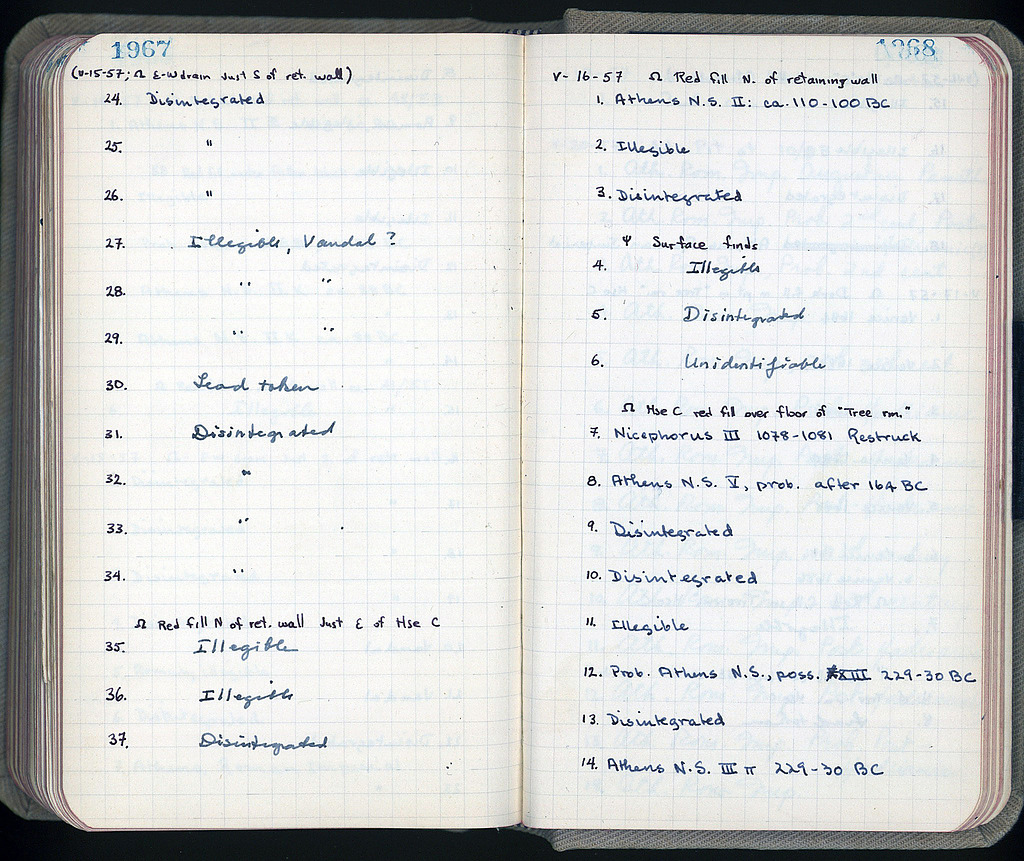 1967
(V-15-57; Ω E-W drain just S of ret. wall)
24. Disintegrated
25. "
26. "
27. Illegible, Vandal?
28. " "
29. " "
30. Lead token
31. Disintegrated
32. "
33. "
34. "
Ω Red fill N of ret. wall just E of Hse C
35. Illegible
36. Illegible
37. Disintegrated
1968
V-16-57 Ω Red fill N. of retaining wall
1. Athens N.S. II: ca. 110-100 BC
2. Illegible
3. Disintegrated
Ψ Surface finds
4. Illegible
5. Disintegrated
6. Unidentifiable
Ω Hse C red fill over floor of "Tree rm."
7. Nicephorus III 1078-1081 Restruck
8. Athens N.S. V, prob. after 164 BC
9. Disintegrated
10. Disintegrated
11. Illegible
12. Prob. Athens N.S., poss. 229-30 BC
13. Disintegrated
14. Athens N.S. III π 229-30 BC